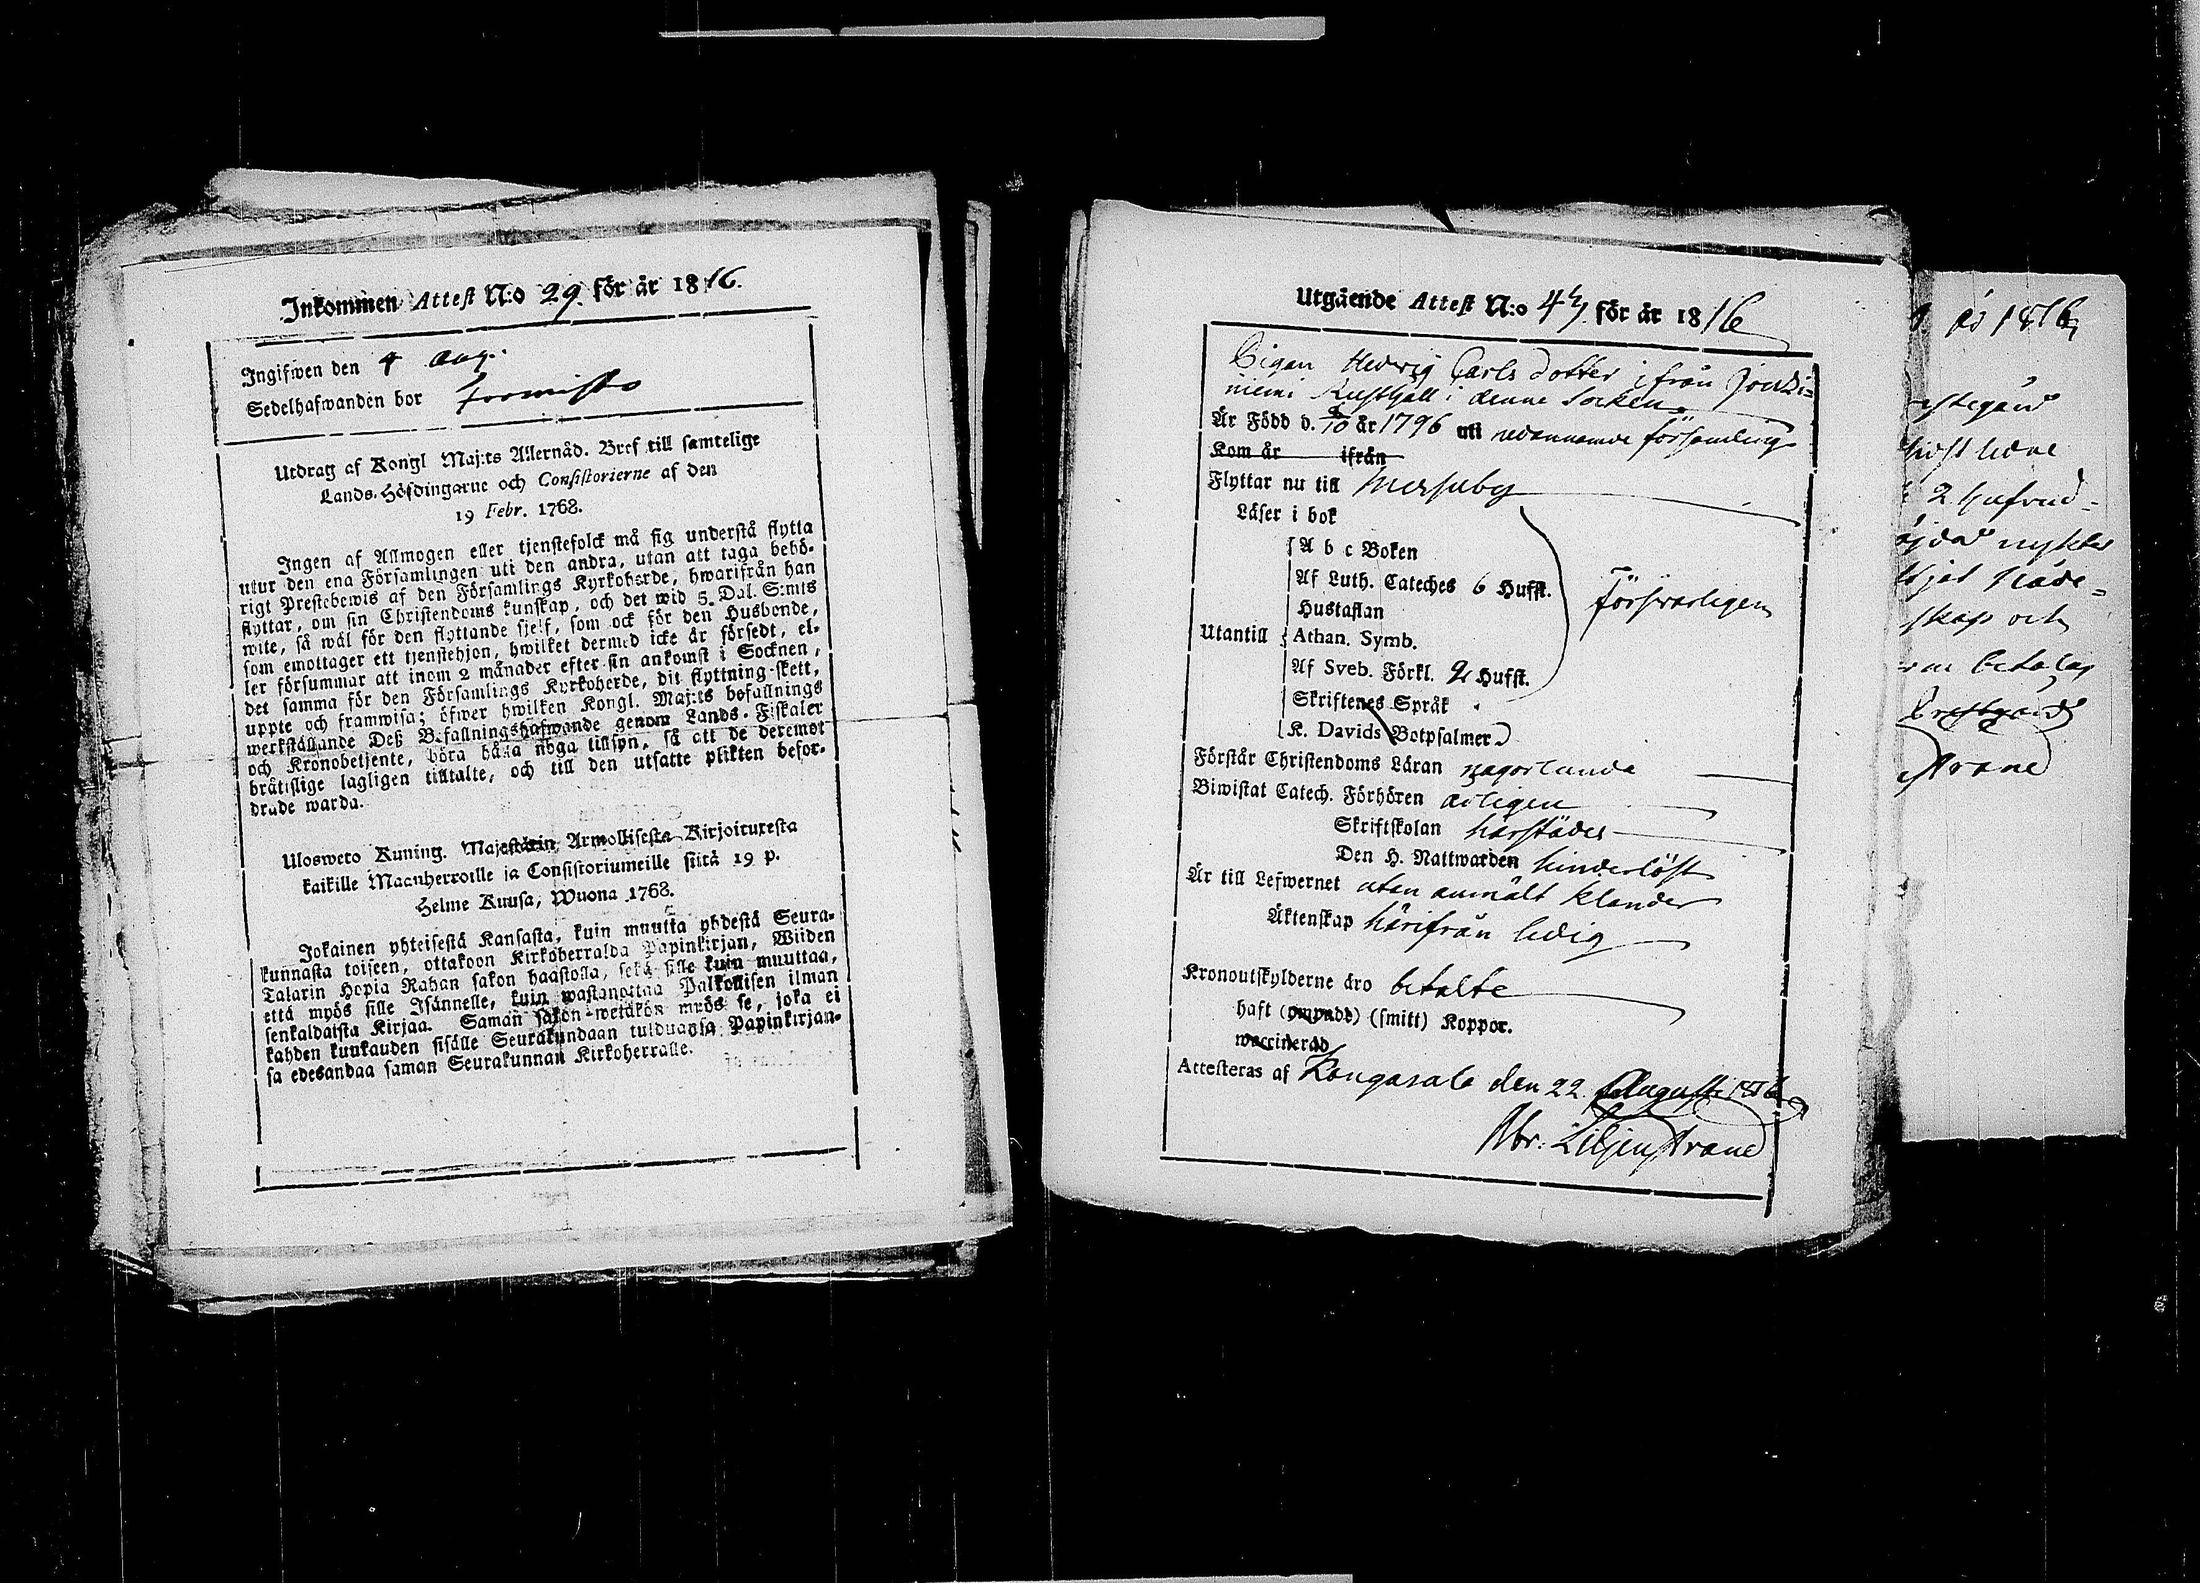 Inkommen Attest N:o 29. för år 1816.
Ingifwen den 4 Aug.
Sedelhafwanden bor
Utdrag af Kongl Maj:ts Allernåd. Bref till samtelige
Lands-Höfdingarne och Consistorierne af den
19 Febr. 1768.
Ingen af Allmogen eller tjenstefolck må sig understå flytta
utur den ena Församlingen uti den andra, utan att taga behö-
rigt Prestebewis af den Församlings Kyrkoherde, hwarifrån han
flyttar, om sin Christendoms kunskap, och det wid 5. Dal. S:mts
wite, så wäl för den flyttande sjelf, som ock för den Husbonde,
som emottager ett tjenstehjon, hwilket dermed icke är försedt, el-
ler försummar att inom 2 månader efter sin ankomst i Socknen,
det samma för den Församlings Kyrkoherde, dit flyttning skett,
uppte och framwisa; öfwer hwilken Kongl. Maj:ts befallnings
werkställande Deß Befallningshafwande genom Lands-Fiskaler
och Kronobetjente, böra hålla noga tillsyn, så att de deremot
bråtislige lagligen tilltalte, och till den utsatte plikten befor-
drade warda.
Ulosweto Kuning. Majestätin Armollisesta Kirjoituxesta
kaikille Maanherroille ja Consistoriumeille siitä 19 p.
Helme Kuusa, Wuona 1768.
Jokainen yhteisestä Kansasta, kuin muutta yhdestä Seura-
kunnasta toiseen, ottakoon Kirkoherralda Papinkirjan, Wiiden
Talarin Hopia Rahan sakon haastolla, sekä sille kuin muuttaa,
että myös sille Isännelle, kuin wastanottaa Palkollisen ilman
senkaldaista Kirjaa. Saman sakon wetäkön myös se, joka ei
kahden kuukauden sisälle Seurakundaan tulduansa Papinkirjan-
sa edesandaa saman Seurakunnan Kirkoherralle.
Utgående Attest N:o 47. för år 1816
Pigan Hedvig Carls dotter ifrån Jouki=
niemi Rusthåll i denne Socken
Är Född d. 8/10 år 1796 uti nedannämde församling
Kom år ifrån
Flyttar nu till Messuby
Läser i bok
A b c Boken
Af Luth. Cateches 6 Hufst.
Hustaflan
Utantill Athan. Symb.
Af Sveb. Förkl. 2 Hufst.
Skriftenes Språk
K. Davids Botpsalmer
Försvarligen
Förstår Christendoms Läran någorlunda
Biwistat Catech. Förhören årligen
Skriftskolan härstädes
Den H. Nattwarden hinderlöst
Är till Lefwernet utan anmält klander
Äktenskap härifrån ledig
Kronoutskylderne äro betalte
haft (ympade) (smitt) Koppor.
waccinerad
Attesteras af Kangasala den 22 Augusti 1816
Abr: Liljenstrand
år 1816
nykter
skap och
betalar
strand